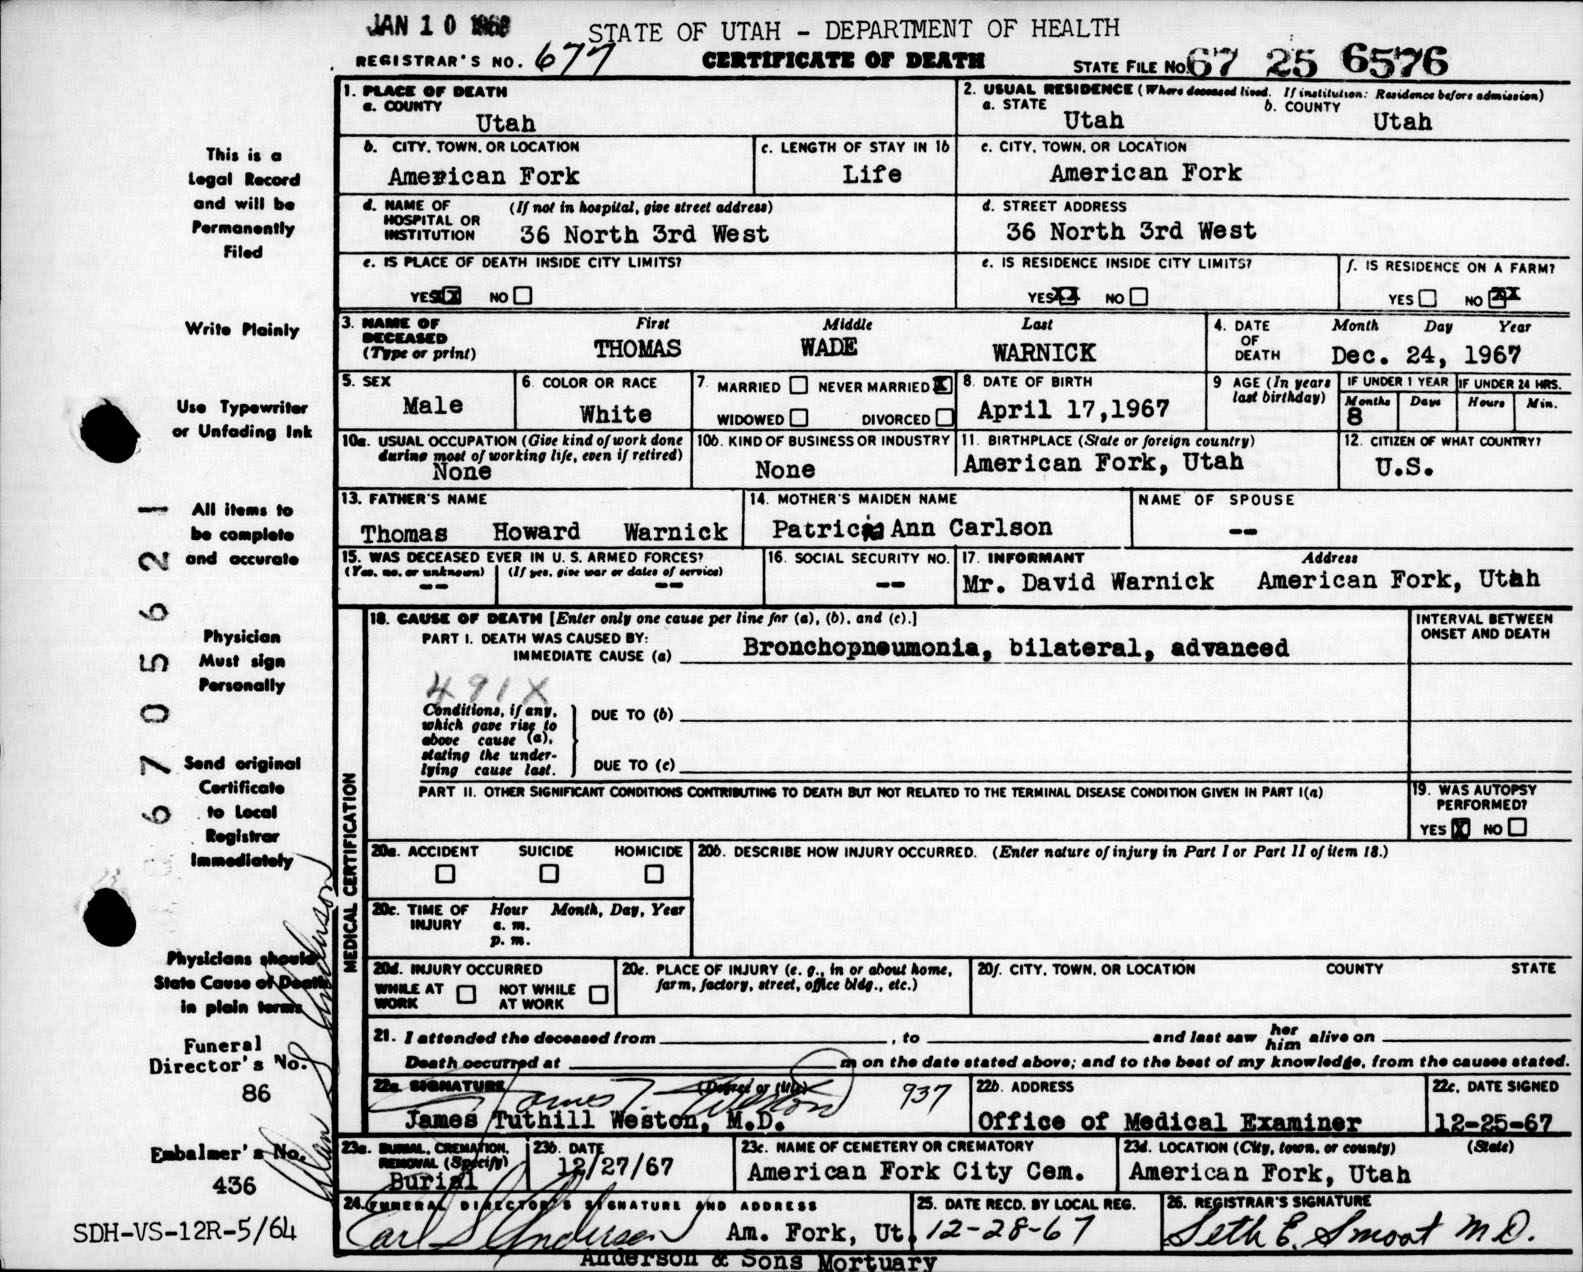 JAN 10 1968
STATE OF UTAH - DEPARTMENT OF HEALTH
REGISTRAR'S NO. 677 CERTIFICATE OF DEATH STATE FILE NO. 67 25 6576
This is a
Legal Record
and will be
Permanently
Filed
Write Plainly
Use Typewriter
or Unfading Ink
All items to
be complete
and accurate
Physician
Must sign
Personally
Send original
Certificate
to Local
Registrar
Immediately
Physicians should
State Cause of Death
in plain terms
Funeral
Director's No.
86
Embalmer's No.
436
SDH-VS-12R-5/64
67050562 1
1. PLACE OF DEATH
a. COUNTY
Utah
2. USUAL RESIDENCE (Where deceased lived. If institution: Residence before admission)
a. STATE b. COUNTY
Utah Utah
b. CITY, TOWN, OR LOCATION
American Fork
c. LENGTH OF STAY IN 1b
Life
c. CITY, TOWN, OR LOCATION
American Fork
d. NAME OF (If not in hospital, give street address)
HOSPITAL OR
INSTITUTION 36 North 3rd West
d. STREET ADDRESS
36 North 3rd West
e. IS PLACE OF DEATH INSIDE CITY LIMITS?
YES XX NO
e. IS RESIDENCE INSIDE CITY LIMITS?
YES XX NO
f. IS RESIDENCE ON A FARM?
YES NO XX
3. NAME OF First Middle Last
DECEASED
(Type or print) THOMAS WADE WARNICK
4. DATE Month Day Year
OF
DEATH Dec. 24, 1967
5. SEX
Male
6. COLOR OR RACE
White
7. MARRIED NEVER MARRIED X
WIDOWED DIVORCED
8. DATE OF BIRTH
April 17,1967
9 AGE (In years
last birthday)
IF UNDER 1 YEAR IF UNDER 24 HRS.
Months Days Hours Min.
8
10a. USUAL OCCUPATION (Give kind of work done
during most of working life, even if retired)
None
10b. KIND OF BUSINESS OR INDUSTRY
None
11. BIRTHPLACE (State or foreign country)
American Fork, Utah
12. CITIZEN OF WHAT COUNTRY?
U.S.
13. FATHER'S NAME
Thomas Howard Warnick
14. MOTHER'S MAIDEN NAME
Patricia Ann Carlson
NAME OF SPOUSE
--
15. WAS DECEASED EVER IN U. S. ARMED FORCES?
(Yes, no, or unknown) (If yes, give war or dates of service)
-- --
16. SOCIAL SECURITY NO.
--
17. INFORMANT Address
Mr. David Warnick American Fork, Utah
MEDICAL CERTIFICATION
18. CAUSE OF DEATH [Enter only one cause per line for (a), (b), and (c).]
PART I. DEATH WAS CAUSED BY:
IMMEDIATE CAUSE (a) Bronchopneumonia, bilateral, advanced
INTERVAL BETWEEN
ONSET AND DEATH
491X
Conditions, if any,
which gave rise to
above cause (a),
stating the under-
lying cause last.
DUE TO (b)
DUE TO (c)
PART II. OTHER SIGNIFICANT CONDITIONS CONTRIBUTING TO DEATH BUT NOT RELATED TO THE TERMINAL DISEASE CONDITION GIVEN IN PART I(a)
19. WAS AUTOPSY
PERFORMED?
YES X NO
20a. ACCIDENT SUICIDE HOMICIDE
20b. DESCRIBE HOW INJURY OCCURRED. (Enter nature of injury in Part I or Part II of item 18.)
20c. TIME OF Hour Month, Day, Year
INJURY a. m.
p. m.
20d. INJURY OCCURRED
WHILE AT NOT WHILE
WORK AT WORK
20e. PLACE OF INJURY (e. g., in or about home,
farm, factory, street, office bldg., etc.)
20f. CITY, TOWN, OR LOCATION COUNTY STATE
21. I attended the deceased from , to and last saw her him alive on
Death occurred at m on the date stated above; and to the best of my knowledge, from the causes stated.
22a. SIGNATURE (Degree or title)
James T. Weston 937
James Tuthill Weston, M.D.
22b. ADDRESS
Office of Medical Examiner
22c. DATE SIGNED
12-25-67
23a. BURIAL, CREMATION,
REMOVAL (Specify)
Burial
23b. DATE
12/27/67
23c. NAME OF CEMETERY OR CREMATORY
American Fork City Cem.
23d. LOCATION (City, town, or county) (State)
American Fork, Utah
24. FUNERAL DIRECTOR'S SIGNATURE AND ADDRESS
Earl S Anderson Am. Fork, Ut.
Anderson & Sons Mortuary
25. DATE RECD. BY LOCAL REG.
12-28-67
26. REGISTRAR'S SIGNATURE
Seth E. Smoot M.D.